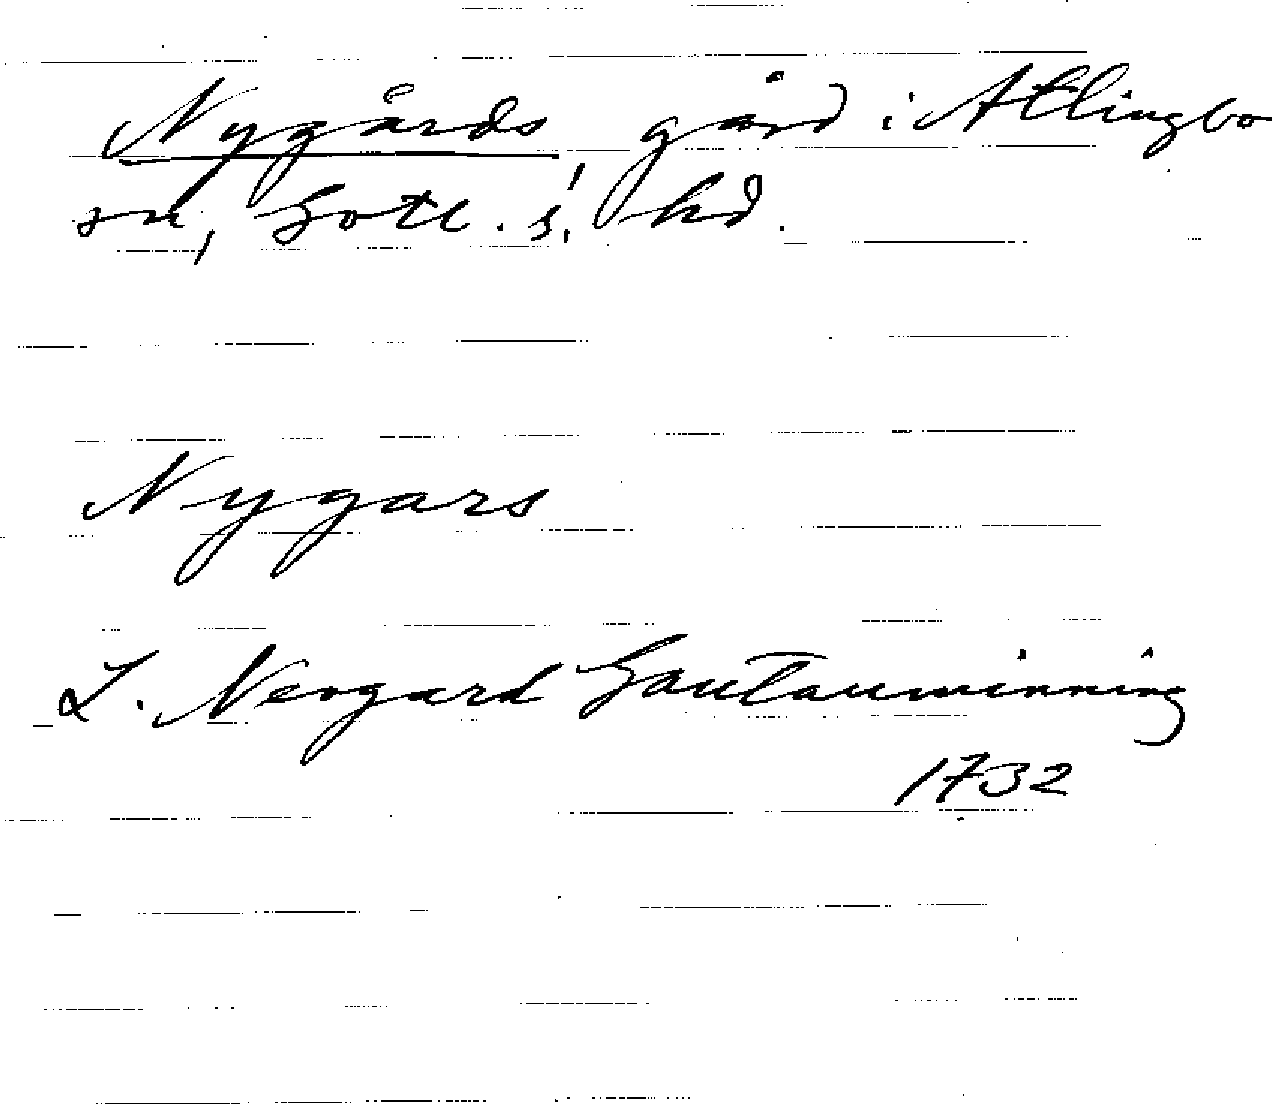 Nygårds, gård i Atlingbo
sn, Gotl. s. hd.
Nygars
L. Neogard Gautauminning
1732